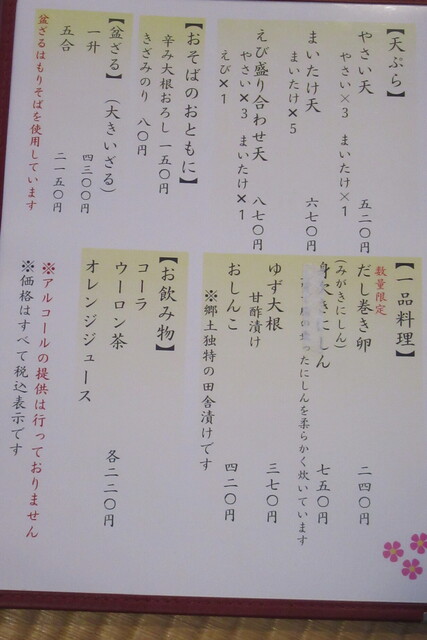 【天ぷら】
やさい天 五二〇円
やさい×3 まいたけ×1
まいたけ天 六七〇円
まいたけ×5
えび盛り合わせ天 八七〇円
やさい×3 まいたけ×1
えび×1
【おそばのおともに】
辛み大根おろし 一五〇円
きざみのり 八〇円
【盆ざる】(大きいざる)
一升 四三〇〇円
五合 二一五〇円
盆ざるはもりそばを使用しています
【一品料理】
数量限定
だし巻き卵 二四〇円
(みがきにしん)
身欠きにしん 七五〇円
たにしんを柔らかく炊いています
ゆず大根 三七〇円
甘酢漬け
おしんこ 四二〇円
※郷土独特の田舎漬けです
【お飲み物】
コーラ
ウーロン茶 各二二〇円
オレンジジュース
※アルコールの提供は行っておりません
※価格はすべて税込表示です